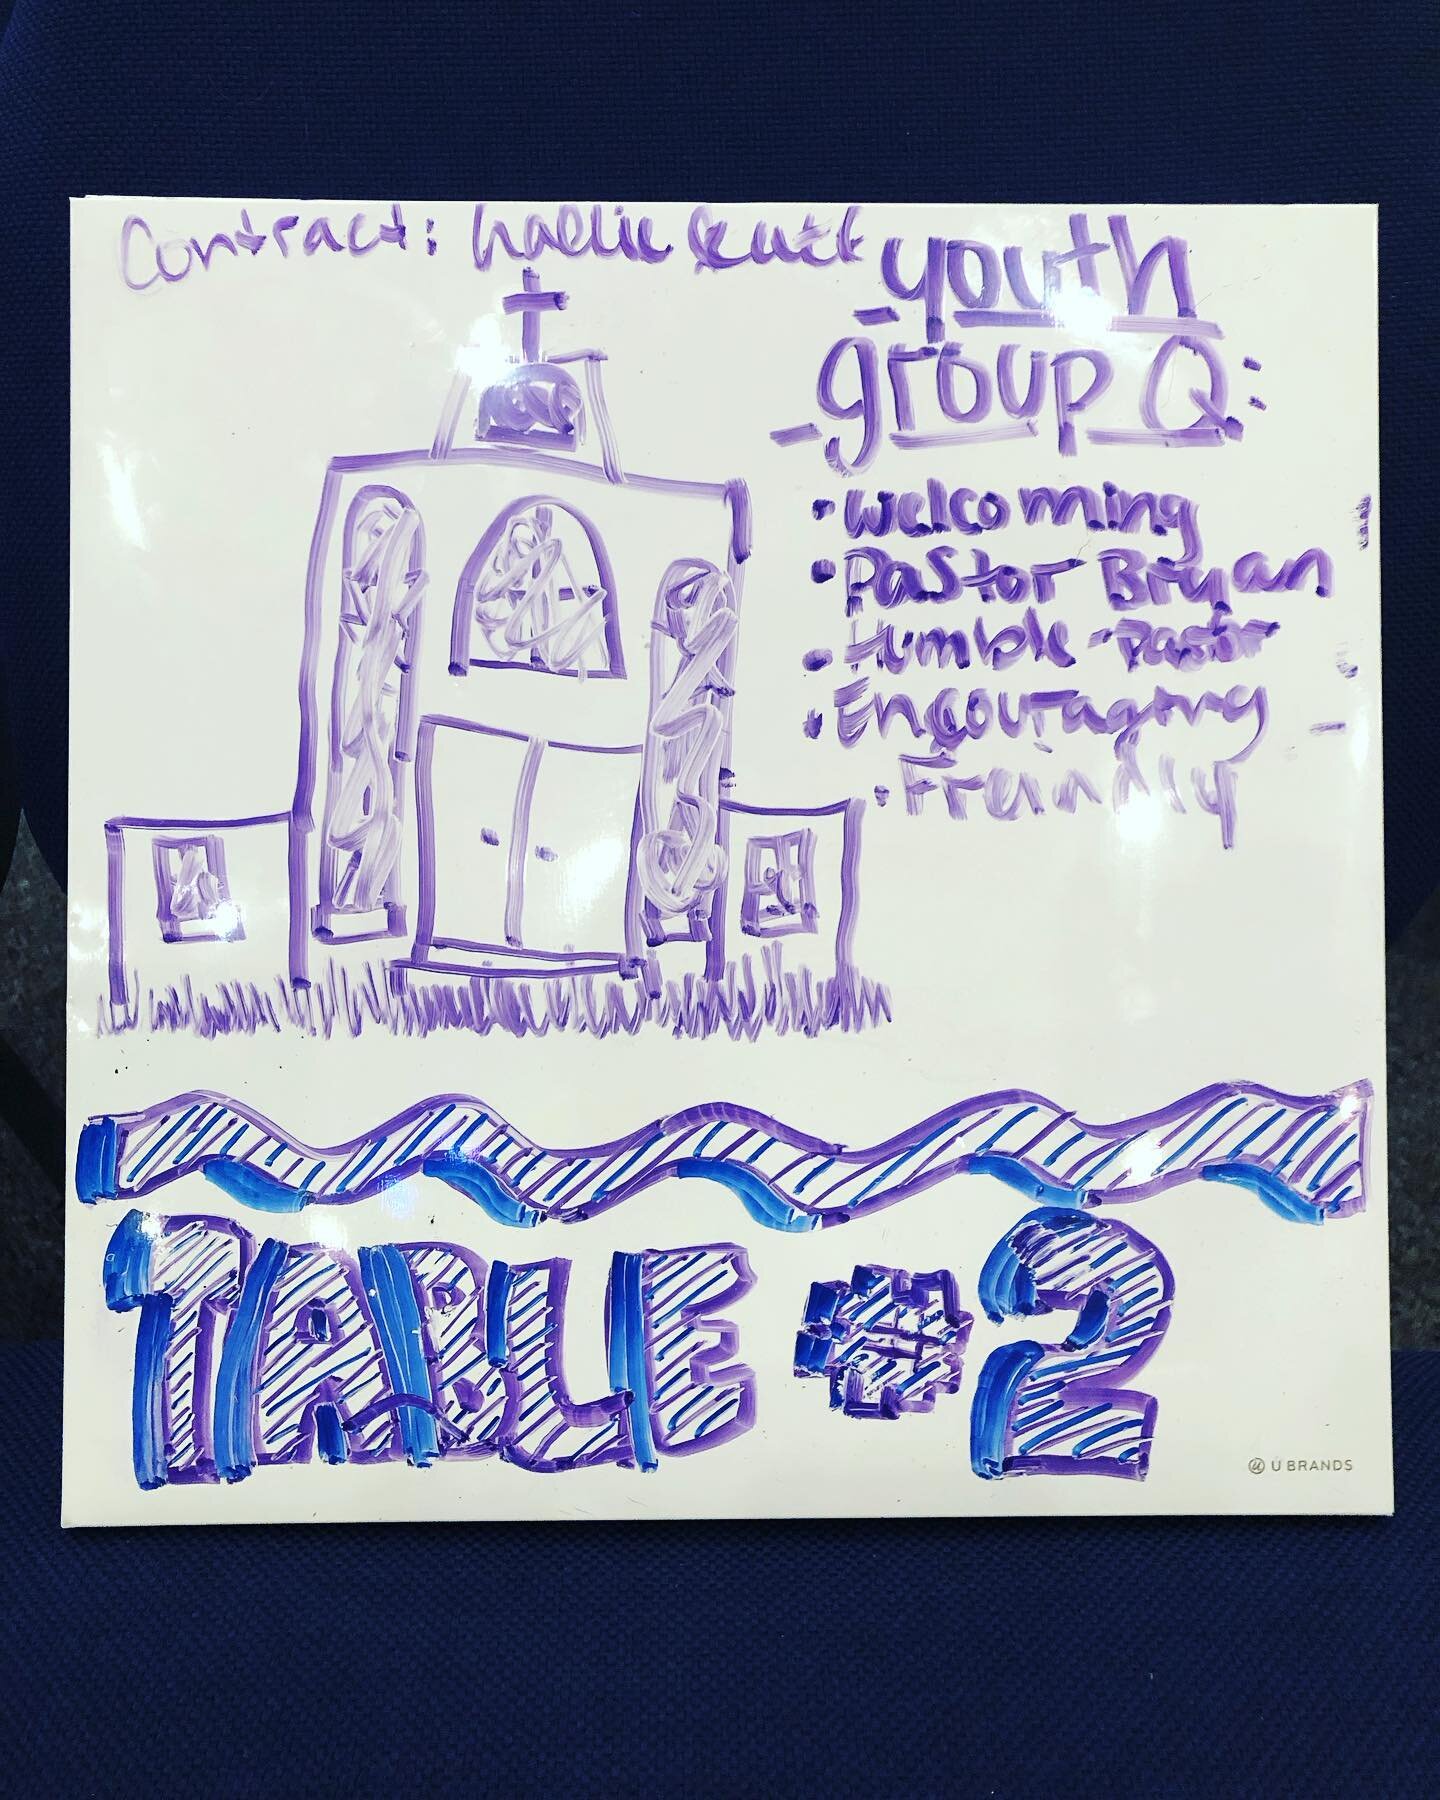 Contract: hallie
youth
group Q:
• Welcoming
• Pastor Bryan
• Humble - Pastor
• Encouraging
• Freindly
TABLE #2
U BRANDS